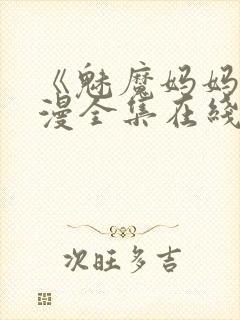 《魅魔妈妈
漫全集在线
次旺多吉